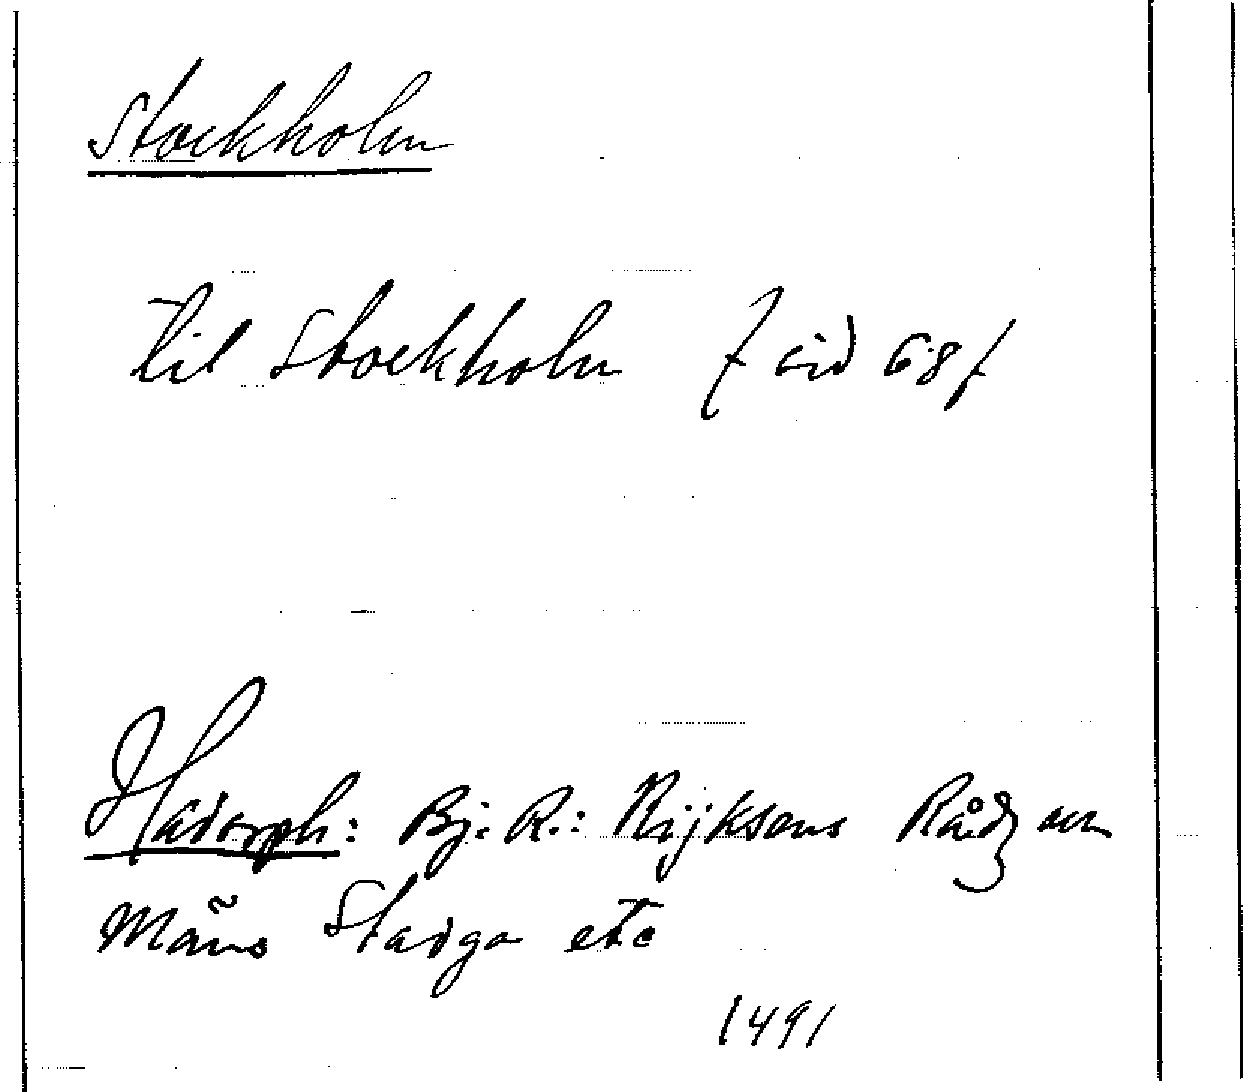 Stockholm
til Stockholm f sid 68 f
Hadorph: Bj. R.: Rijksens Rådz och
Mãns Stadga etc
1491